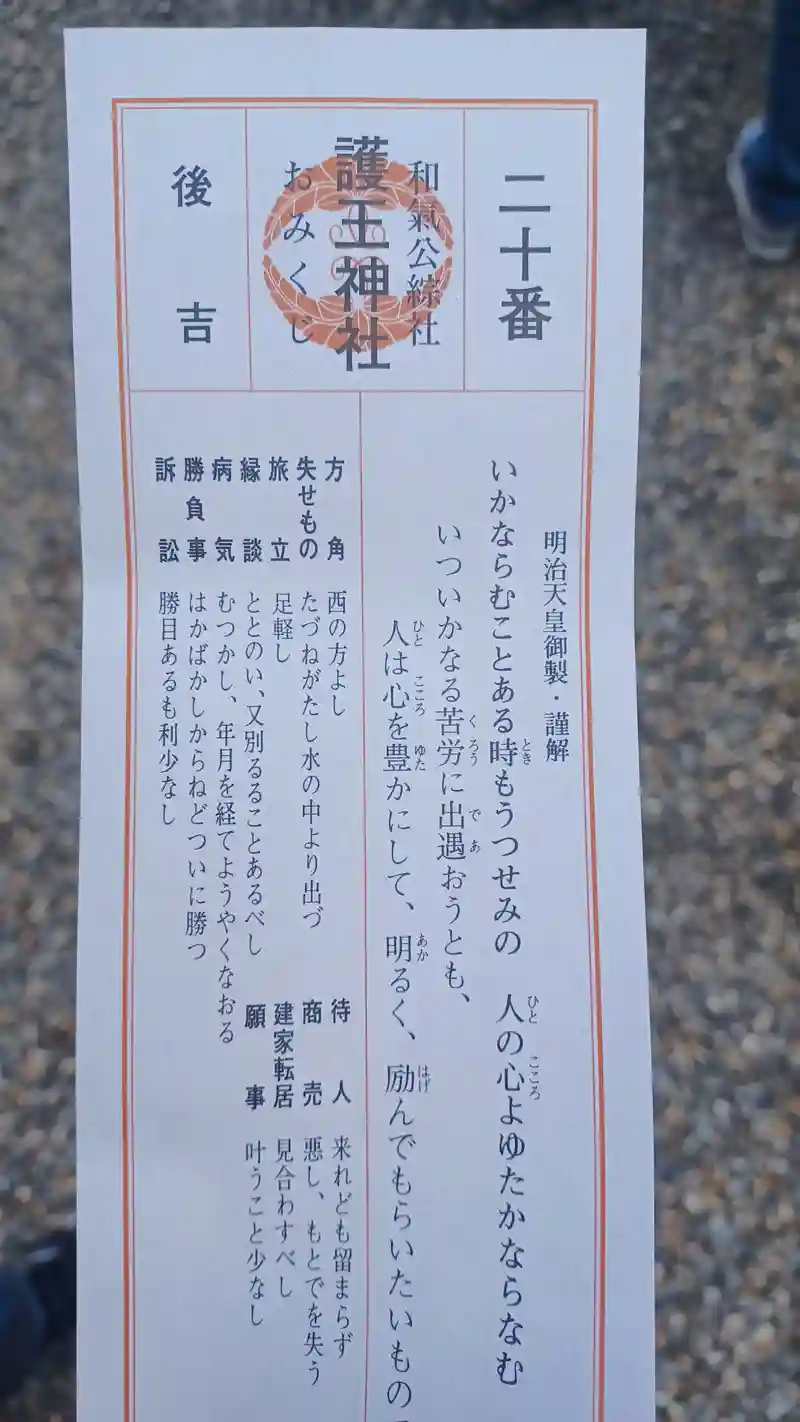 二十番
和氣公綜社
護王神社
おみくじ
後吉
明治天皇御製・謹解
いかならむことある時もうつせみの 人の心よゆたかならなむ
いついかなる苦労に出遇おうとも、
人は心を豊かにして、明るく、励んでもらいたいもの
方角 西の方よし
失せもの たづねがたし水の中より出づ
旅立 足軽し
縁談 ととのい、又別るることあるべし
病気 むつかし、年月を経てようやくなおる
勝負事 はかばかしからねどついに勝つ
訴訟 勝目あるも利少なし
待人 来れども留まらず
商売 悪し、もとでを失う
建家転居 見合わすべし
願事 叶うこと少なし